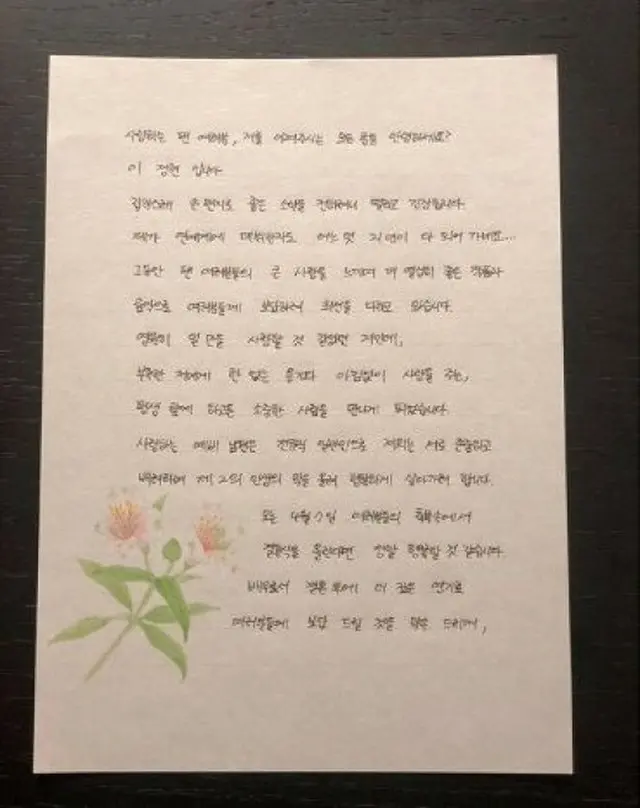 사랑하는 팬 여러분, 저를 아껴주시는 모든 분들 안녕하세요?
이 정현 입니다.
갑작스레 손편지로 좋은 소식을 전하려니 떨리고 긴장됩니다.
제가 연예계에 데뷔한지도 어느덧 되어 가네요...
그동안 팬 여러분들의 큰 사랑을 느끼며 더 열심히 좋은 작품과
음악으로 여러분들께 보답하려 최선을 다하고 있습니다.
영원히 일 만을 사랑할 것 같았던 저인데,
부족한 저에게 한 없는 용기와 아낌없이 사랑을 주는,
평생 함께 하고픈 소중한 사람을 만나게 되었습니다.
사랑하는 예비 남편은 일반인으로 저희는 서로 존중하고
배려하며 제 2의 인생의 막을 올려 살아가려 합니다.
오는 4월 7일 여러분들의 축복속에서
결혼식을 올린다면 정말 행복할 것 같습니다.
배우로서 결혼 후에 더 깊은 연기로
여러분들께 보답 드릴 것을 약속 드리며,